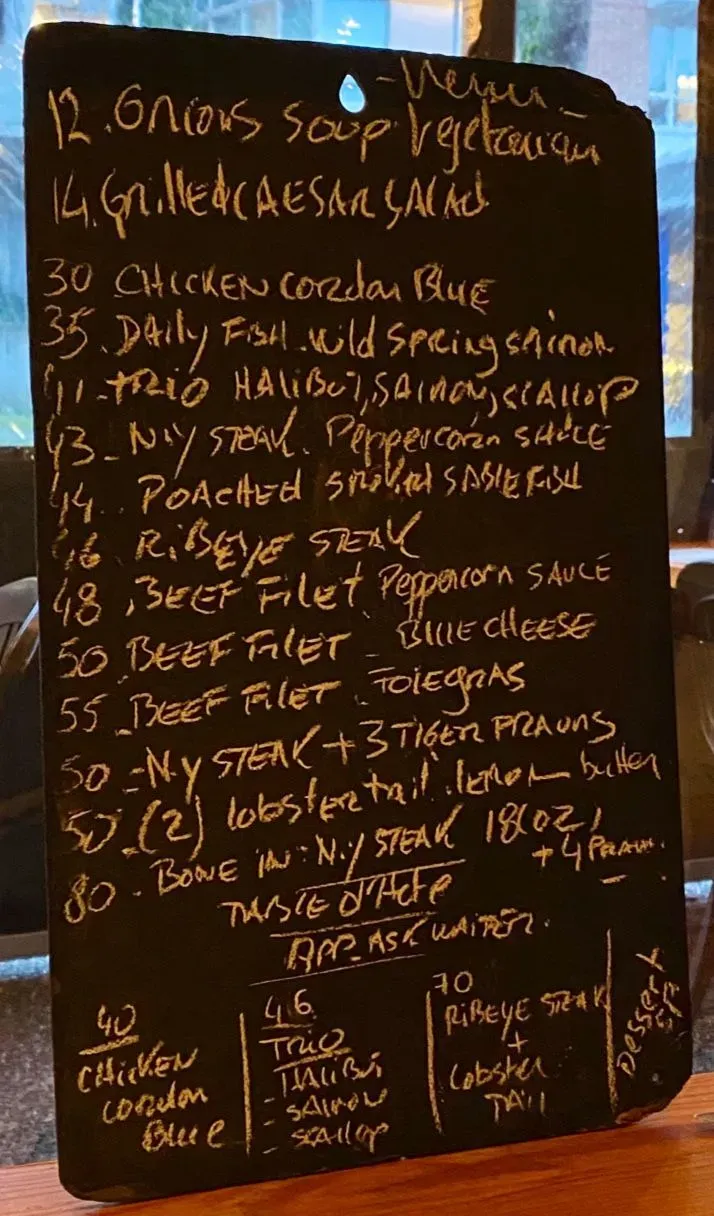 - Menu -
12. Onions Soup Vegetarian
14. Grilled CAESAR SALAD
30 CHICKEN CORDON BLUE
35. DAILY FISH. Wild SPRING SALMON
41 - TRIO HALIBUT, SALMON, SCALLOP
43 - N.Y STEAK. Peppercorn SAUCE
44. POACHED SMOKED SABLEFISH
46. RiBEYE STEAK
48. BEEF FiLET Peppercorn SAUCE
50. BEEF FILET - BLUE CHEESE
55 - BEEF FILET. FOIEGRAS
50 - N.y STEAK + 3 TIGER PRAWNS
50 - (2) lobster tail. lemon butter
80 - BONE IN N.y STEAK 18(OZ)
+ 4 PRAWN.
TABLE d'Hote
APP - ASK WAITER.
40
CHICKEN
CORDON
BLUE
46
TRIO
- HALIBUT
- SALMON
- SCALLOP
70
RiBEYE STEAK
+
Lobster
TAIL
DESSERT